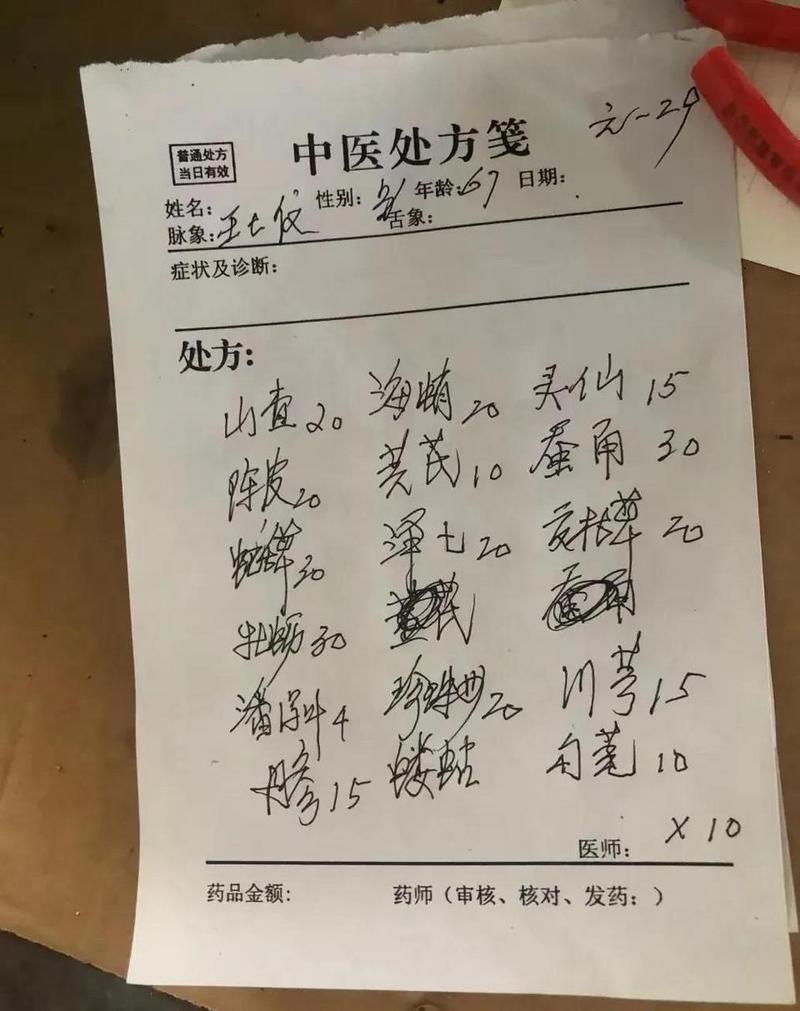 元-29
普通处方
当日有效
中医处方笺
姓名: 性别: 年龄:67 日期:
脉象: 舌象:
症状及诊断:
处方:
山查20 海蛸20 灵仙15
陈皮20 黄芪10 蚕甬30
20 泽七20 夏枯草20
牡蛎30
4 珍珠母20 川芎15
丹参15 蝼蛄 勾 10
x10
医师:
药品金额: 药师(审核、核对、发药:)